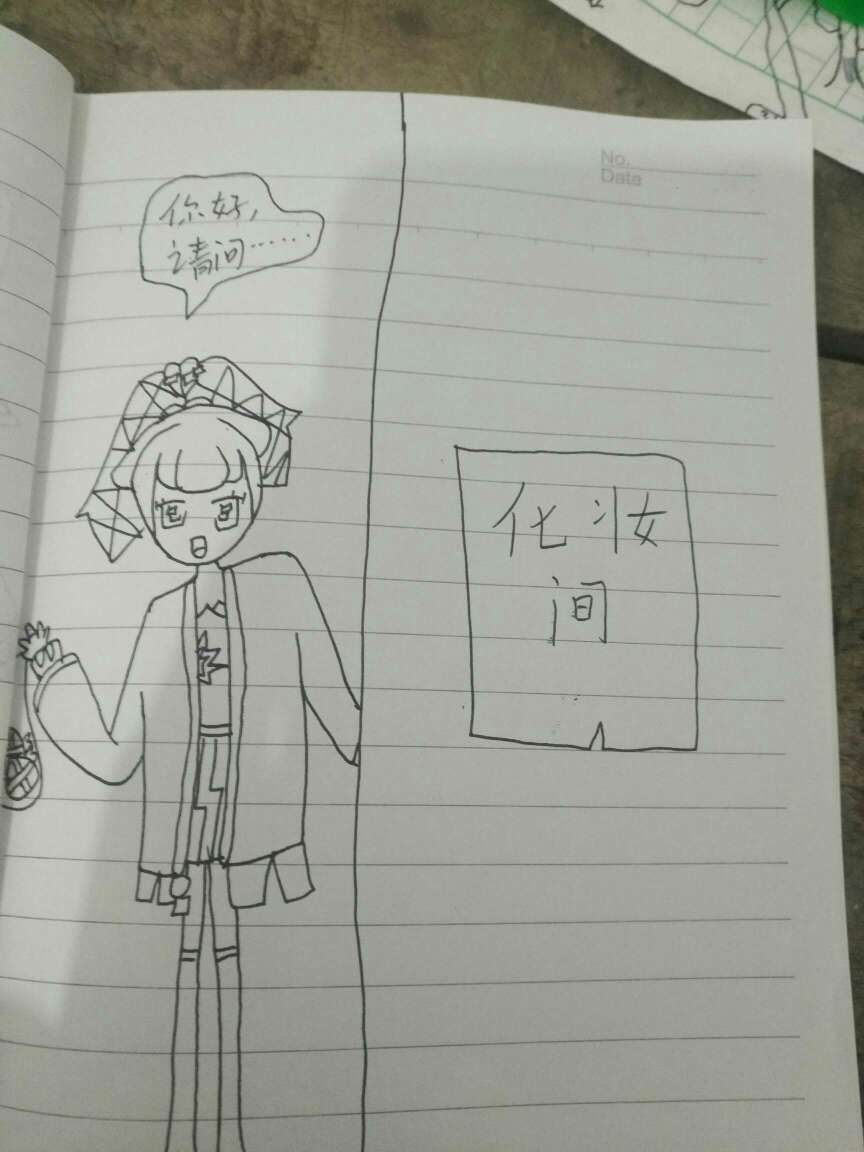 No.
Date
你好，
请问……
化妆
间